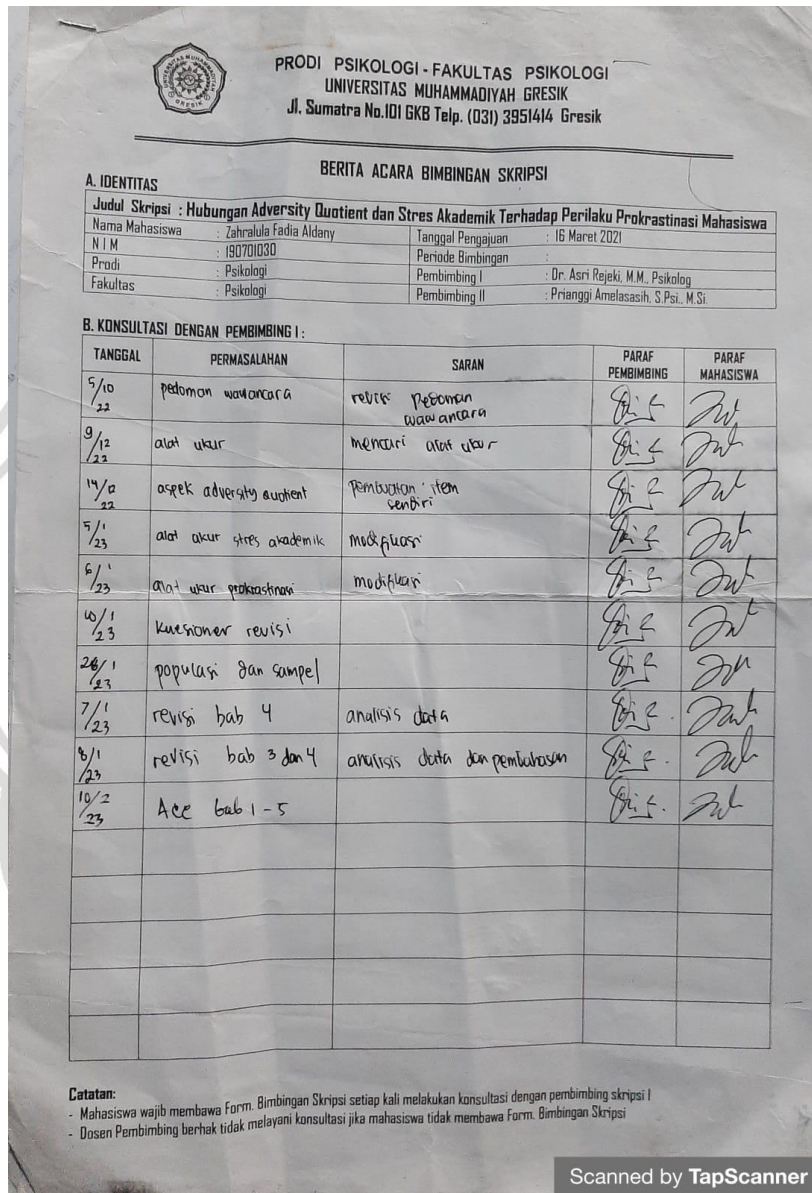 PRODI PSIKOLOGI - FAKULTAS PSIKOLOGI
UNIVERSITAS MUHAMMADIYAH GRESIK
Jl. Sumatra No.101 GKB Telp. (031) 3951414 Gresik
BERITA ACARA BIMBINGAN SKRIPSI
A. IDENTITAS
Judul Skripsi : Hubungan Adversity Quotient dan Stres Akademik Terhadap Perilaku Prokrastinasi Mahasiswa
Nama Mahasiswa : Zahralula Fadia Aldany Tanggal Pengajuan : 16 Maret 2021
N I M : 190701030 Periode Bimbingan :
Prodi : Psikologi Pembimbing I : Dr. Asri Rejeki, M.M., Psikolog
Fakultas : Psikologi Pembimbing II : Prianggi Amelasasih, S.Psi., M.Si.
B. KONSULTASI DENGAN PEMBIMBING I :
TANGGAL PERMASALAHAN SARAN PARAF PEMBIMBING PARAF MAHASISWA
5/10 22 pedoman wawancara revisi pedoman wawancara
9/12 22 alat ukur mencari alat ukur
22 aspek adversity quotient pembuatan item sendiri
5/1 23 alat ukur stres akademik modifikasi
6/1 23 alat ukur prokrastinasi modifikasi
10/1 23 kuesioner revisi
/1 23 populasi dan sampel
7/1 23 revisi bab 4 analisis data
8/1 23 revisi bab 3 dan 4 analisis data dan pembahasan
10/2 23 Acc bab 1 - 5
Catatan:
- Mahasiswa wajib membawa Form. Bimbingan Skripsi setiap kali melakukan konsultasi dengan pembimbing skripsi I
- Dosen Pembimbing berhak tidak melayani konsultasi jika mahasiswa tidak membawa Form. Bimbingan Skripsi
Scanned by TapScanner